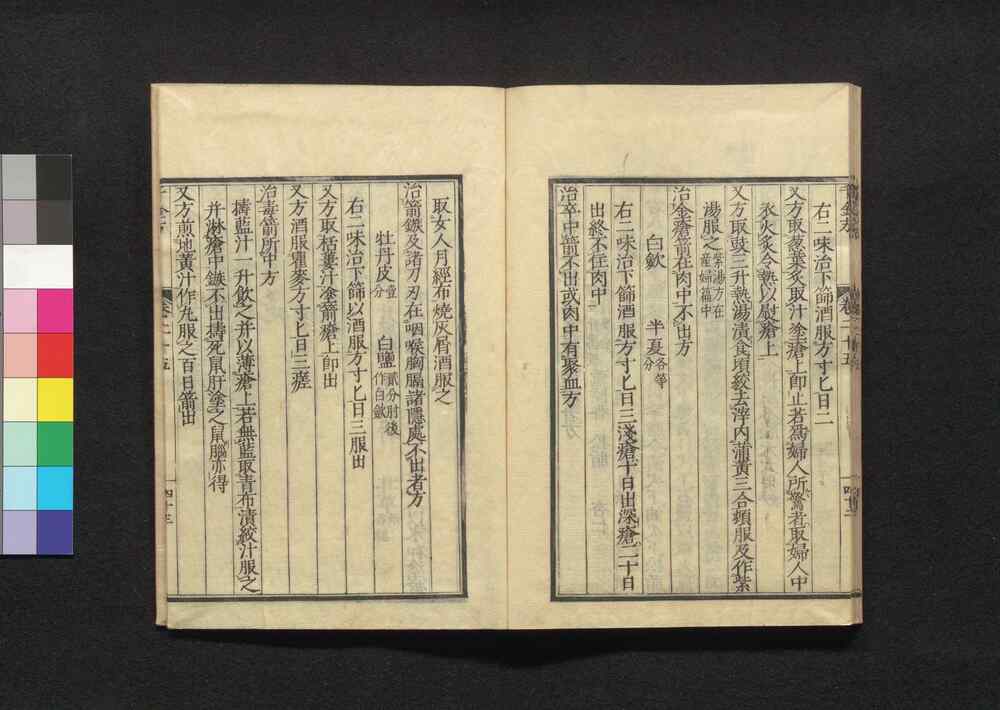 右二味治下篩酒服方寸匕日二
又方取葱葉炙取汁塗瘡上即止若爲婦人所驚者取婦人中
衣火炙令熱以熨瘡上
又方取豉三升熱湯漬食頃絞去滓内蒲黄三合頓服及作紫
湯服之紫湯方在産婦篇中
治金瘡箭在肉中不出方
白歛 半夏各等分
右二味治下篩酒服方寸匕日三淺瘡十日出深瘡二十日
出終不住肉中
治卒中箭不出或肉中有聚血方
卷二十五
四十二
取女人月經布燒灰屑酒服之
治箭鏃及諸刀刃在咽喉胸膈諸隱處不出者方
牡丹皮壹分 白鹽貳分肘後作白歛
右二味治下篩以酒服方寸匕日三服出
又方取栝蔞汁塗箭瘡上即出
又方酒服瞿麥方寸匕日三瘥
治毒箭所中方
擣藍汁一升飲之并以薄瘡上若無藍取青布漬絞汁服之
并淋瘡中鏃不出擣死鼠肝塗之鼠腦亦得
又方煎地黄汁作丸服之百日箭出
四十三